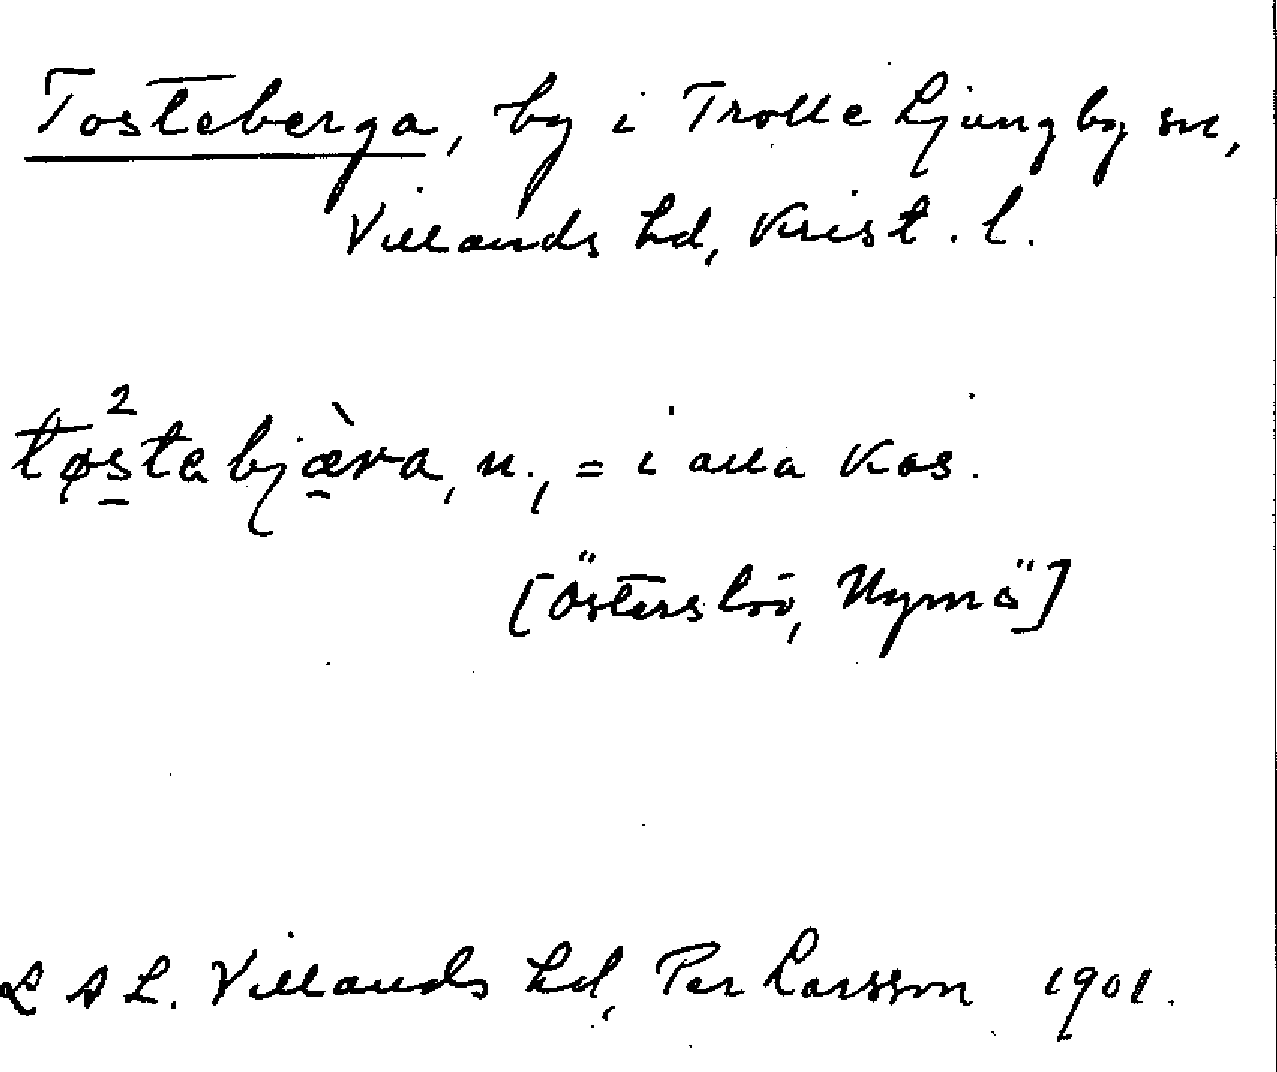 Tosteberga, by i Trolle Ljungby sn,
Villands hd, Krist. l.
tøs²tabjæ̀ra, n., = i alla kas.
[Österslöv, Nymö]
L A L. Villands hd, Per Larsson 1901.